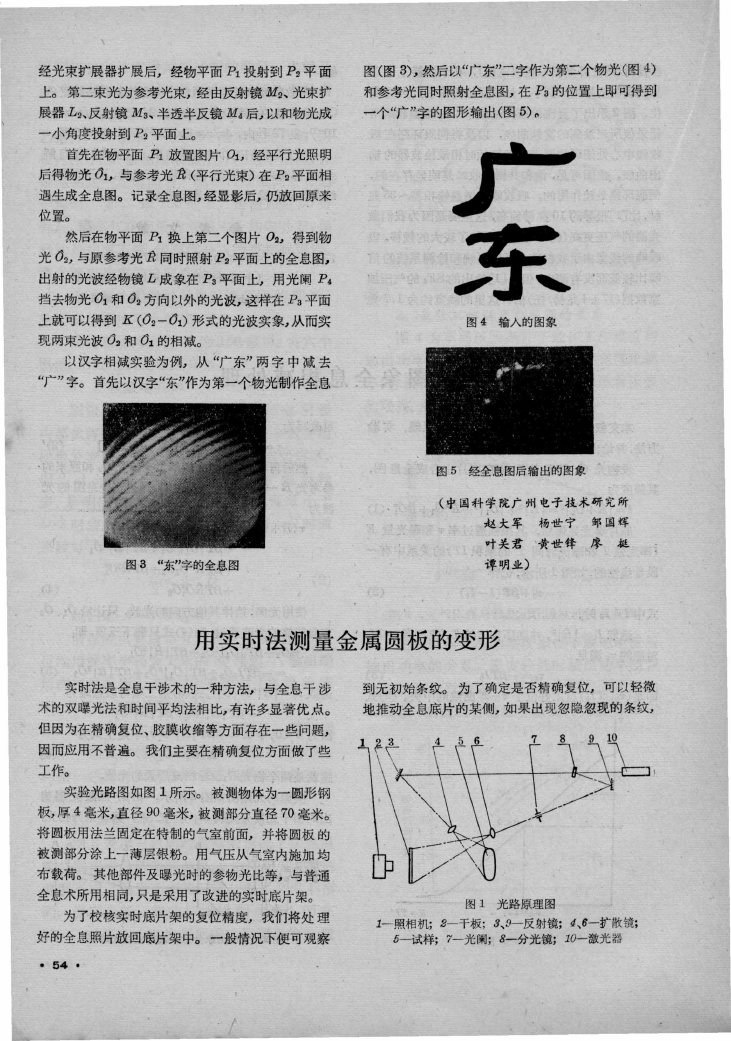 经光束扩展器扩展后，经物平面 P₁ 投射到 P₂ 平面
上。第二束光为参考光束，经由反射镜 M₂、光束扩
展器 L₂、反射镜 M₃、半透半反镜 M₄ 后，以和物光成
一小角度投射到 P₂ 平面上。
首先在物平面 P₁ 放置图片 O₁，经平行光照明
后得物光 Õ₁，与参考光 R̃（平行光束）在 P₂ 平面相
遇生成全息图。记录全息图，经显影后，仍放回原来
位置。
然后在物平面 P₁ 换上第二个图片 O₂，得到物
光 Õ₂，与原参考光 R̃ 同时照射 P₂ 平面上的全息图，
出射的光波经物镜 L 成象在 P₃ 平面上，用光阑 P₄
挡去物光 Õ₁ 和 Õ₂ 方向以外的光波，这样在 P₃ 平面
上就可以得到 K(Õ₂−Õ₁) 形式的光波实象，从而实
现两束光波 Õ₂ 和 Õ₁ 的相减。
以汉字相减实验为例，从“广东”两字中减去
“广”字。首先以汉字“东”作为第一个物光制作全息
图 3 “东”字的全息图
图（图 3），然后以“广东”二字作为第二个物光（图 4）
和参考光同时照射全息图，在 P₃ 的位置上即可得到
一个“广”字的图形输出（图 5）。
广
东
图 4 输入的图象
图 5 经全息图后输出的图象
（中国科学院广州电子技术研究所
赵大军 杨世宁 邹国辉
叶关君 黄世锋 廖 挺
谭明业）
用实时法测量金属圆板的变形
实时法是全息干涉术的一种方法，与全息干涉
术的双曝光法和时间平均法相比，有许多显著优点。
但因为在精确复位、胶膜收缩等方面存在一些问题，
因而应用不普遍。我们主要在精确复位方面做了些
工作。
实验光路图如图 1 所示。被测物体为一圆形钢
板，厚 4 毫米，直径 90 毫米，被测部分直径 70 毫米。
将圆板用法兰固定在特制的气室前面，并将圆板的
被测部分涂上一薄层银粉。用气压从气室内施加均
布载荷。其他部件及曝光时的参物光比等，与普通
全息术所用相同，只是采用了改进的实时底片架。
为了校核实时底片架的复位精度，我们将处理
好的全息照片放回底片架中。一般情况下便可观察
到无初始条纹。为了确定是否精确复位，可以轻微
地推动全息底片的某侧，如果出现忽隐忽现的条纹，
1 2 3 4 5 6 7 8 9 10
图 1 光路原理图
1—照相机；2—干板；3、9—反射镜；4、6—扩散镜；
5—试样；7—光阑；8—分光镜；10—激光器
• 54 •